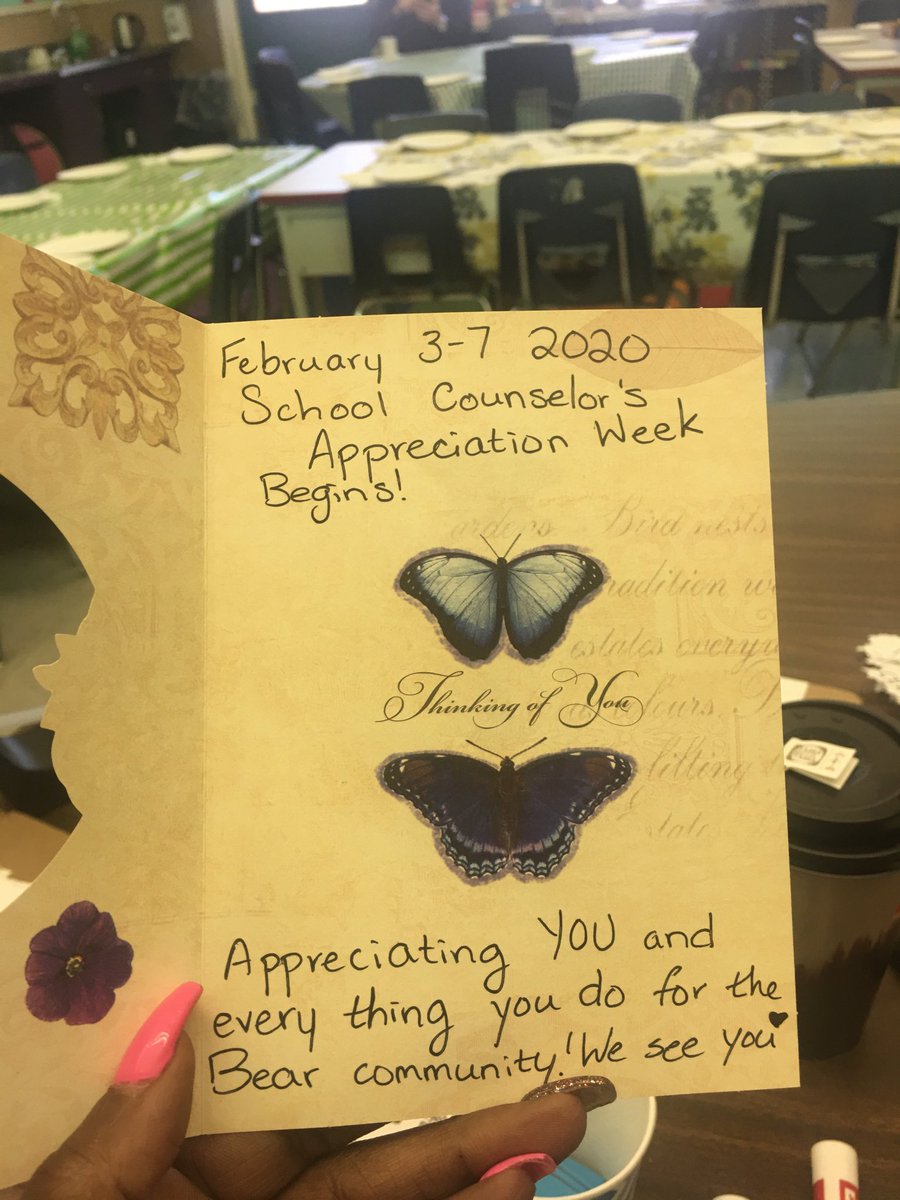 February 3-7 2020
School Counselor's
Appreciation Week
Begins!
Bird nests
tradition
estates
Thinking of You
Appreciating YOU and
every thing you do for the
Bear community! We see you